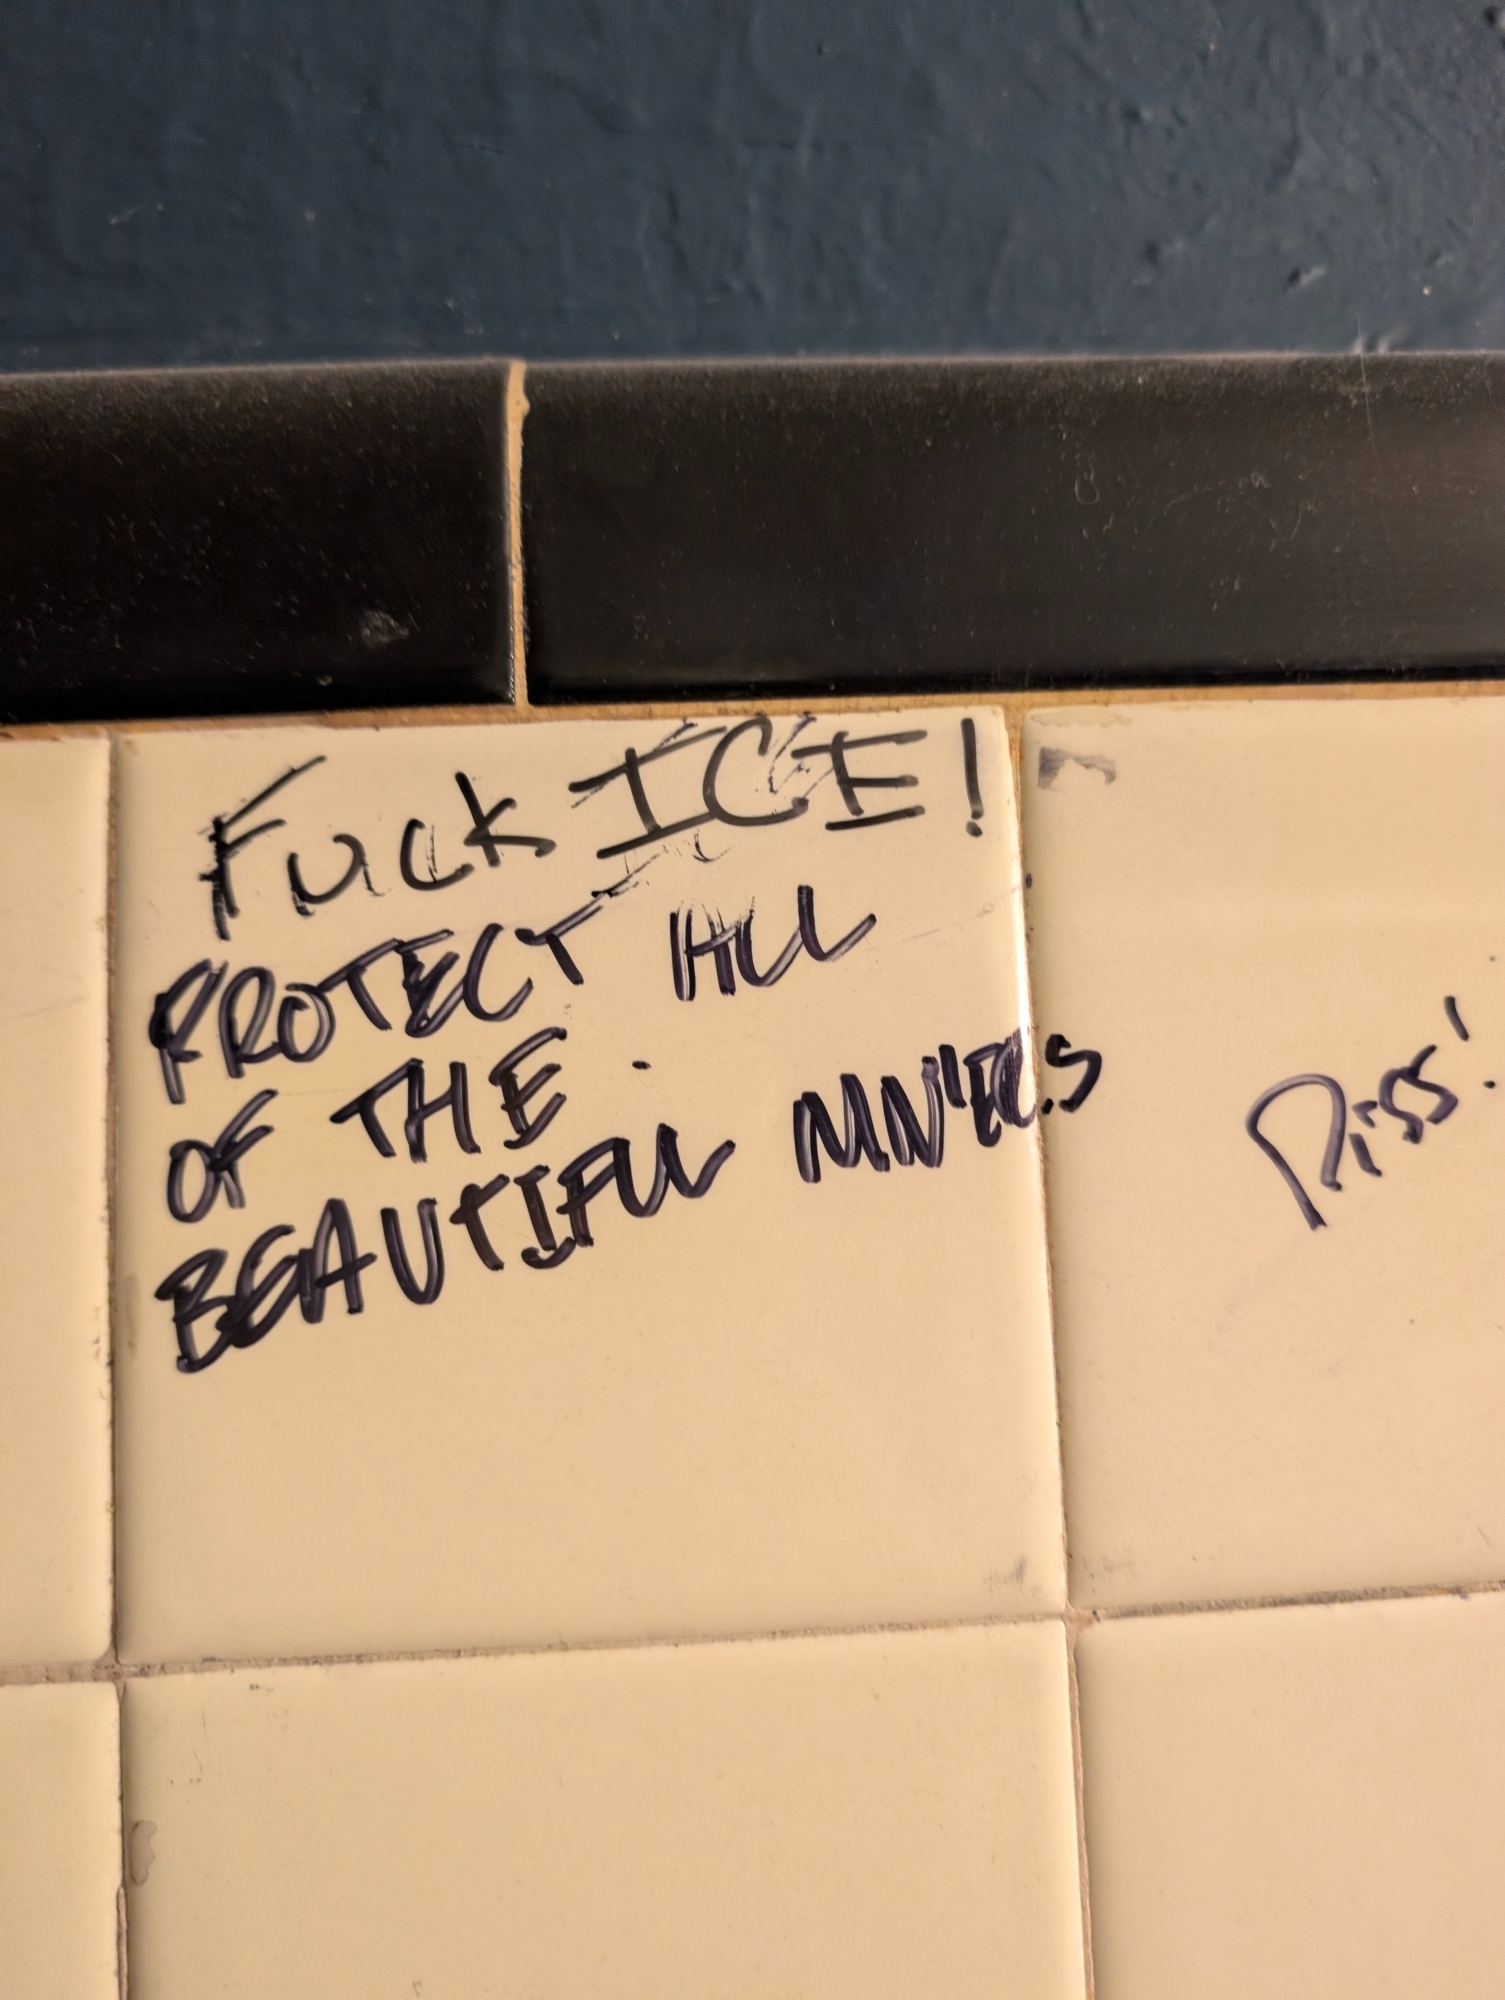 Fuck ICE!
PROTECT ALL
OF THE
BEAUTIFUL MN'ERS
Piss!